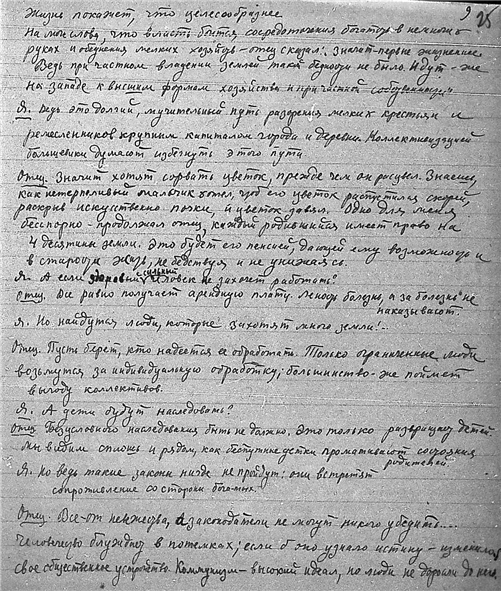 9 25
Жизнь покажет, что целесообразнее
На мои слова, что власть боится сосредоточения богатств в немногих
руках и обеднения мелких хозяйств – отец сказал: значит – первые жизненнее
Ведь при частном владении землей такой бедноты не было. Идут – же
на западе к высшим формам хозяйства и при частной собственности
Я. Ведь это долгий, мучительный путь разорения мелких крестьян и
ремесленников крупным капиталом города и деревни. Коллективизацией
большевики думают избегнуть этого пути.
Отец. Значит хотят сорвать цветок, прежде чем он расцвел. Знаешь,
как нетерпеливый мальчик хотел, чтоб его цветок распустился скорей,
раскрыв искусственно почки, и цветок завял. Одно для меня
бесспорно – продолжал отец, каждый родившийся имеет право на
4 десятины земли. Это будет его пенсией, дающей ему возможность и
в старости жить, не бедствуя и не унижаясь.
Я. А если здоровый сильный человек не захочет работать?
Отец. Все равно получает арендную плату. Леность болезнь, а за болезнь не
наказывают.
Я. Но найдутся люди, которые захотят много земли!..
Отец. Пусть берет, кто надеется ее обработать. Только ограниченные люди
возьмутся за индивидуальную обработку; большинство – же поймет
выгоду коллективов.
Я. А дети будут наследовать?
Отец Безусловного наследования быть не должно. Это только развращает детей
мы видим сплошь и рядом, как беспутные детки проматывают состояния
родителей
Я. Но ведь такие законы нигде не пройдут: они встретят
сопротивление со стороны богатых.
Отец Все – от невежества, а законодатели не могут никого убедить....
Человечество блуждает в потемках; если б оно узнало истину – изменилось
свое общественное устройство. Коммунизм – высокий идеал, но люди не доросли до него